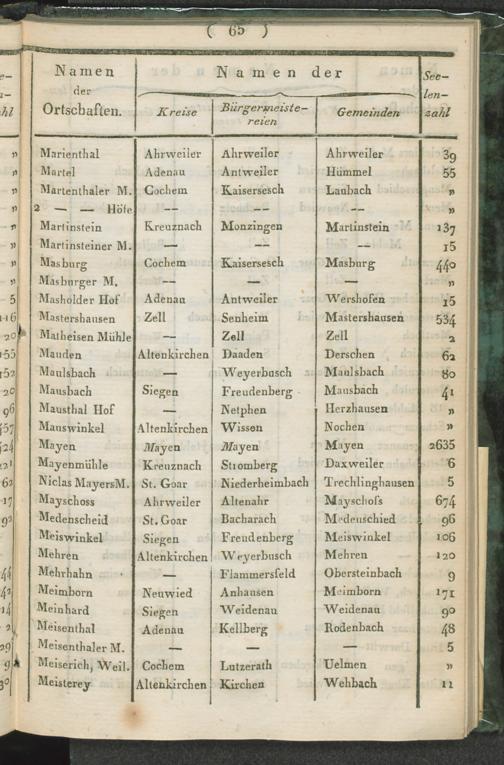 ( 65 )
Namen der Ortschaften. | Namen der | See-len-zahl
Kreise | Bürgermeiste-reien | Gemeinden
Marienthal | Ahrweiler | Ahrweiler | Ahrweiler | 39
Martel | Adenau | Antweiler | Hümmel | 55
Martenthaler M. | Cochem | Kaisersesch | Laubach | „
2 — — Höfe | —— | —— | —— | „
Martinstein | Kreuznach | Monzingen | Martinstein | 137
Martinsteiner M. | — | —— | —— | 15
Masburg | Cochem | Kaisersesch | Masburg | 440
Masburger M. | —— | — | — | „
Masholder Hof | Adenau | Antweiler | Wershofen | 15
Mastershausen | Zell | Senheim | Mastershausen | 534
Matheisen Mühle | — | Zell | Zell | 2
Mauden | Altenkirchen | Daaden | Derschen | 62
Maulsbach | — | Weyerbusch | Maulsbach | 80
Mausbach | Siegen | Freudenberg | Mausbach | 41
Mausthal Hof | — | Netphen | Herzhausen | „
Mauswinkel | Altenkirchen | Wissen | Nochen | „
Mayen | Mayen | Mayen | Mayen | 2635
Mayenmühle | Kreuznach | Stromberg | Daxweiler | 6
Niclas Mayers M. | St. Goar | Niederheimbach | Trechlinghausen | 5
Mayschoss | Ahrweiler | Altenahr | Mayschoſs | 674
Medenscheid | St. Goar | Bacharach | Medenschied | 96
Meiswinkel | Siegen | Freudenberg | Meiswinkel | 106
Mehren | Altenkirchen | Weyerbusch | Mehren | 120
Mehrhahn | — | Flammersfeld | Obersteinbach | 9
Meimborn | Neuwied | Anhausen | Meimborn | 171
Meinhard | Siegen | Weidenau | Weidenau | 90
Meisenthal | Adenau | Kellberg | Rodenbach | 48
Meisenthaler M. | — | — | — | 5
Meiserich, Weil. | Cochem | Lutzerath | Uelmen | „
Meisterey | Altenkirchen | Kirchen | Wehbach | 11